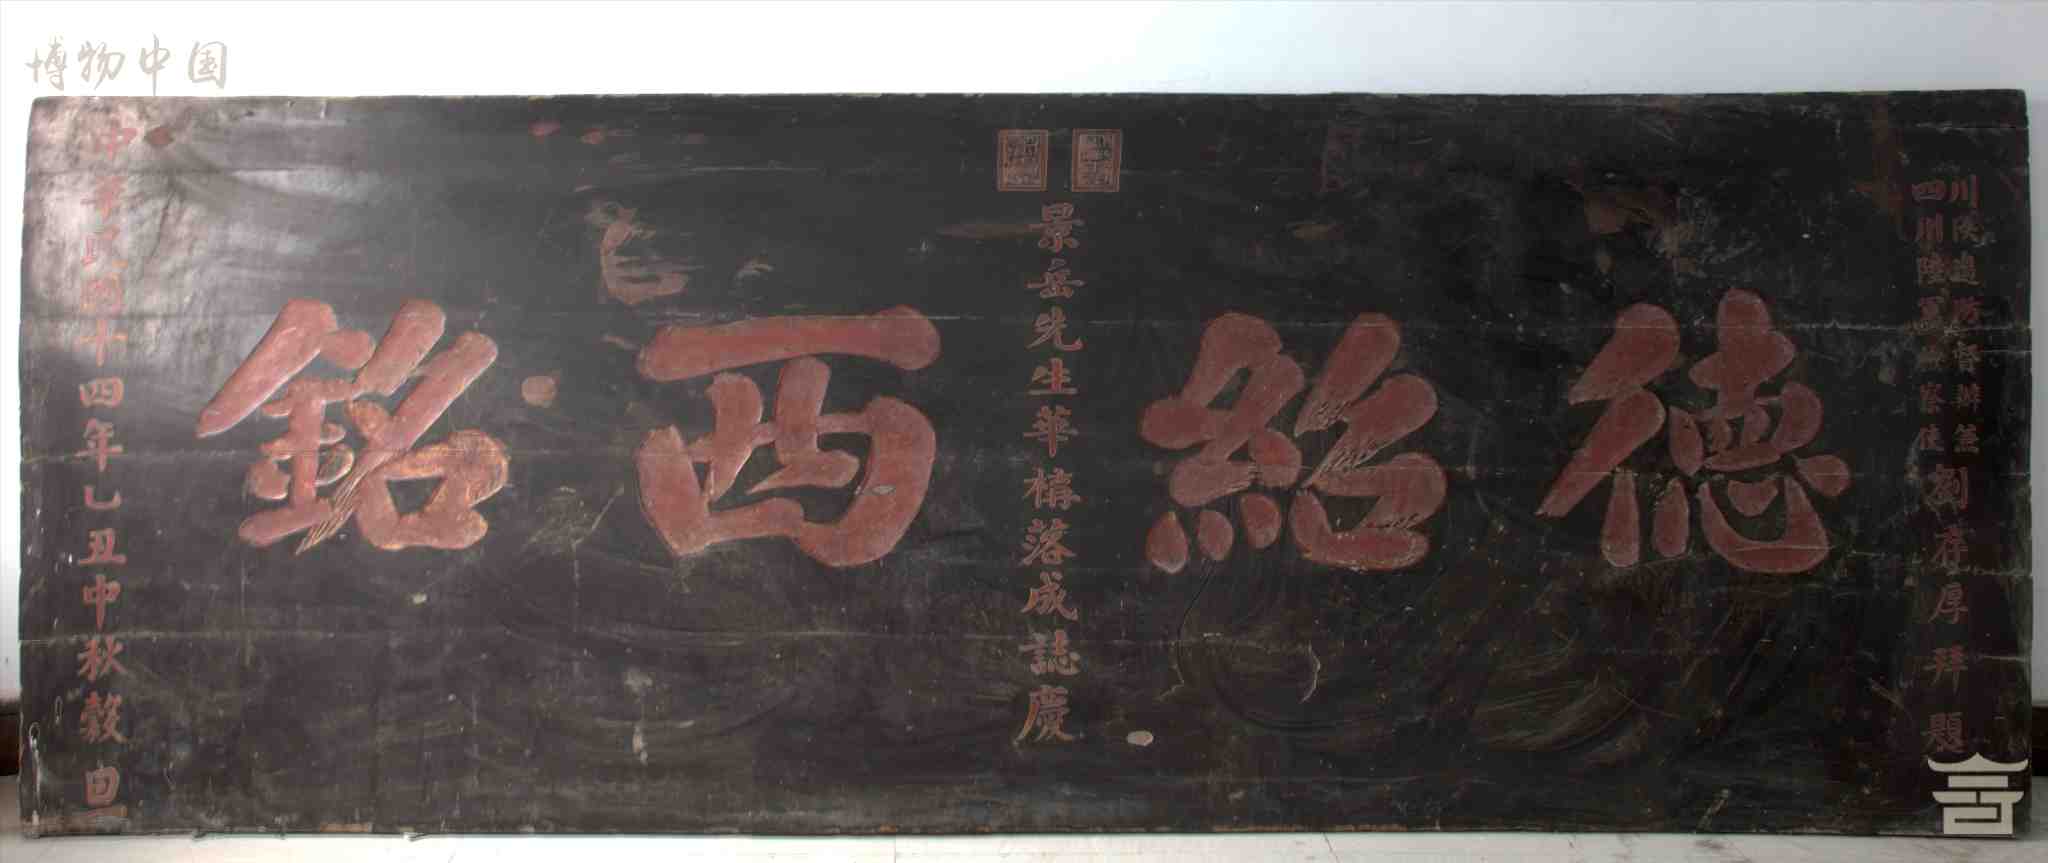 川陝邊防督辦兼
四川陸軍檢察使
劉存厚拜題
德紹西銘
景岳先生華構落成誌慶
中華民國十四年乙丑中秋穀旦
博物中国